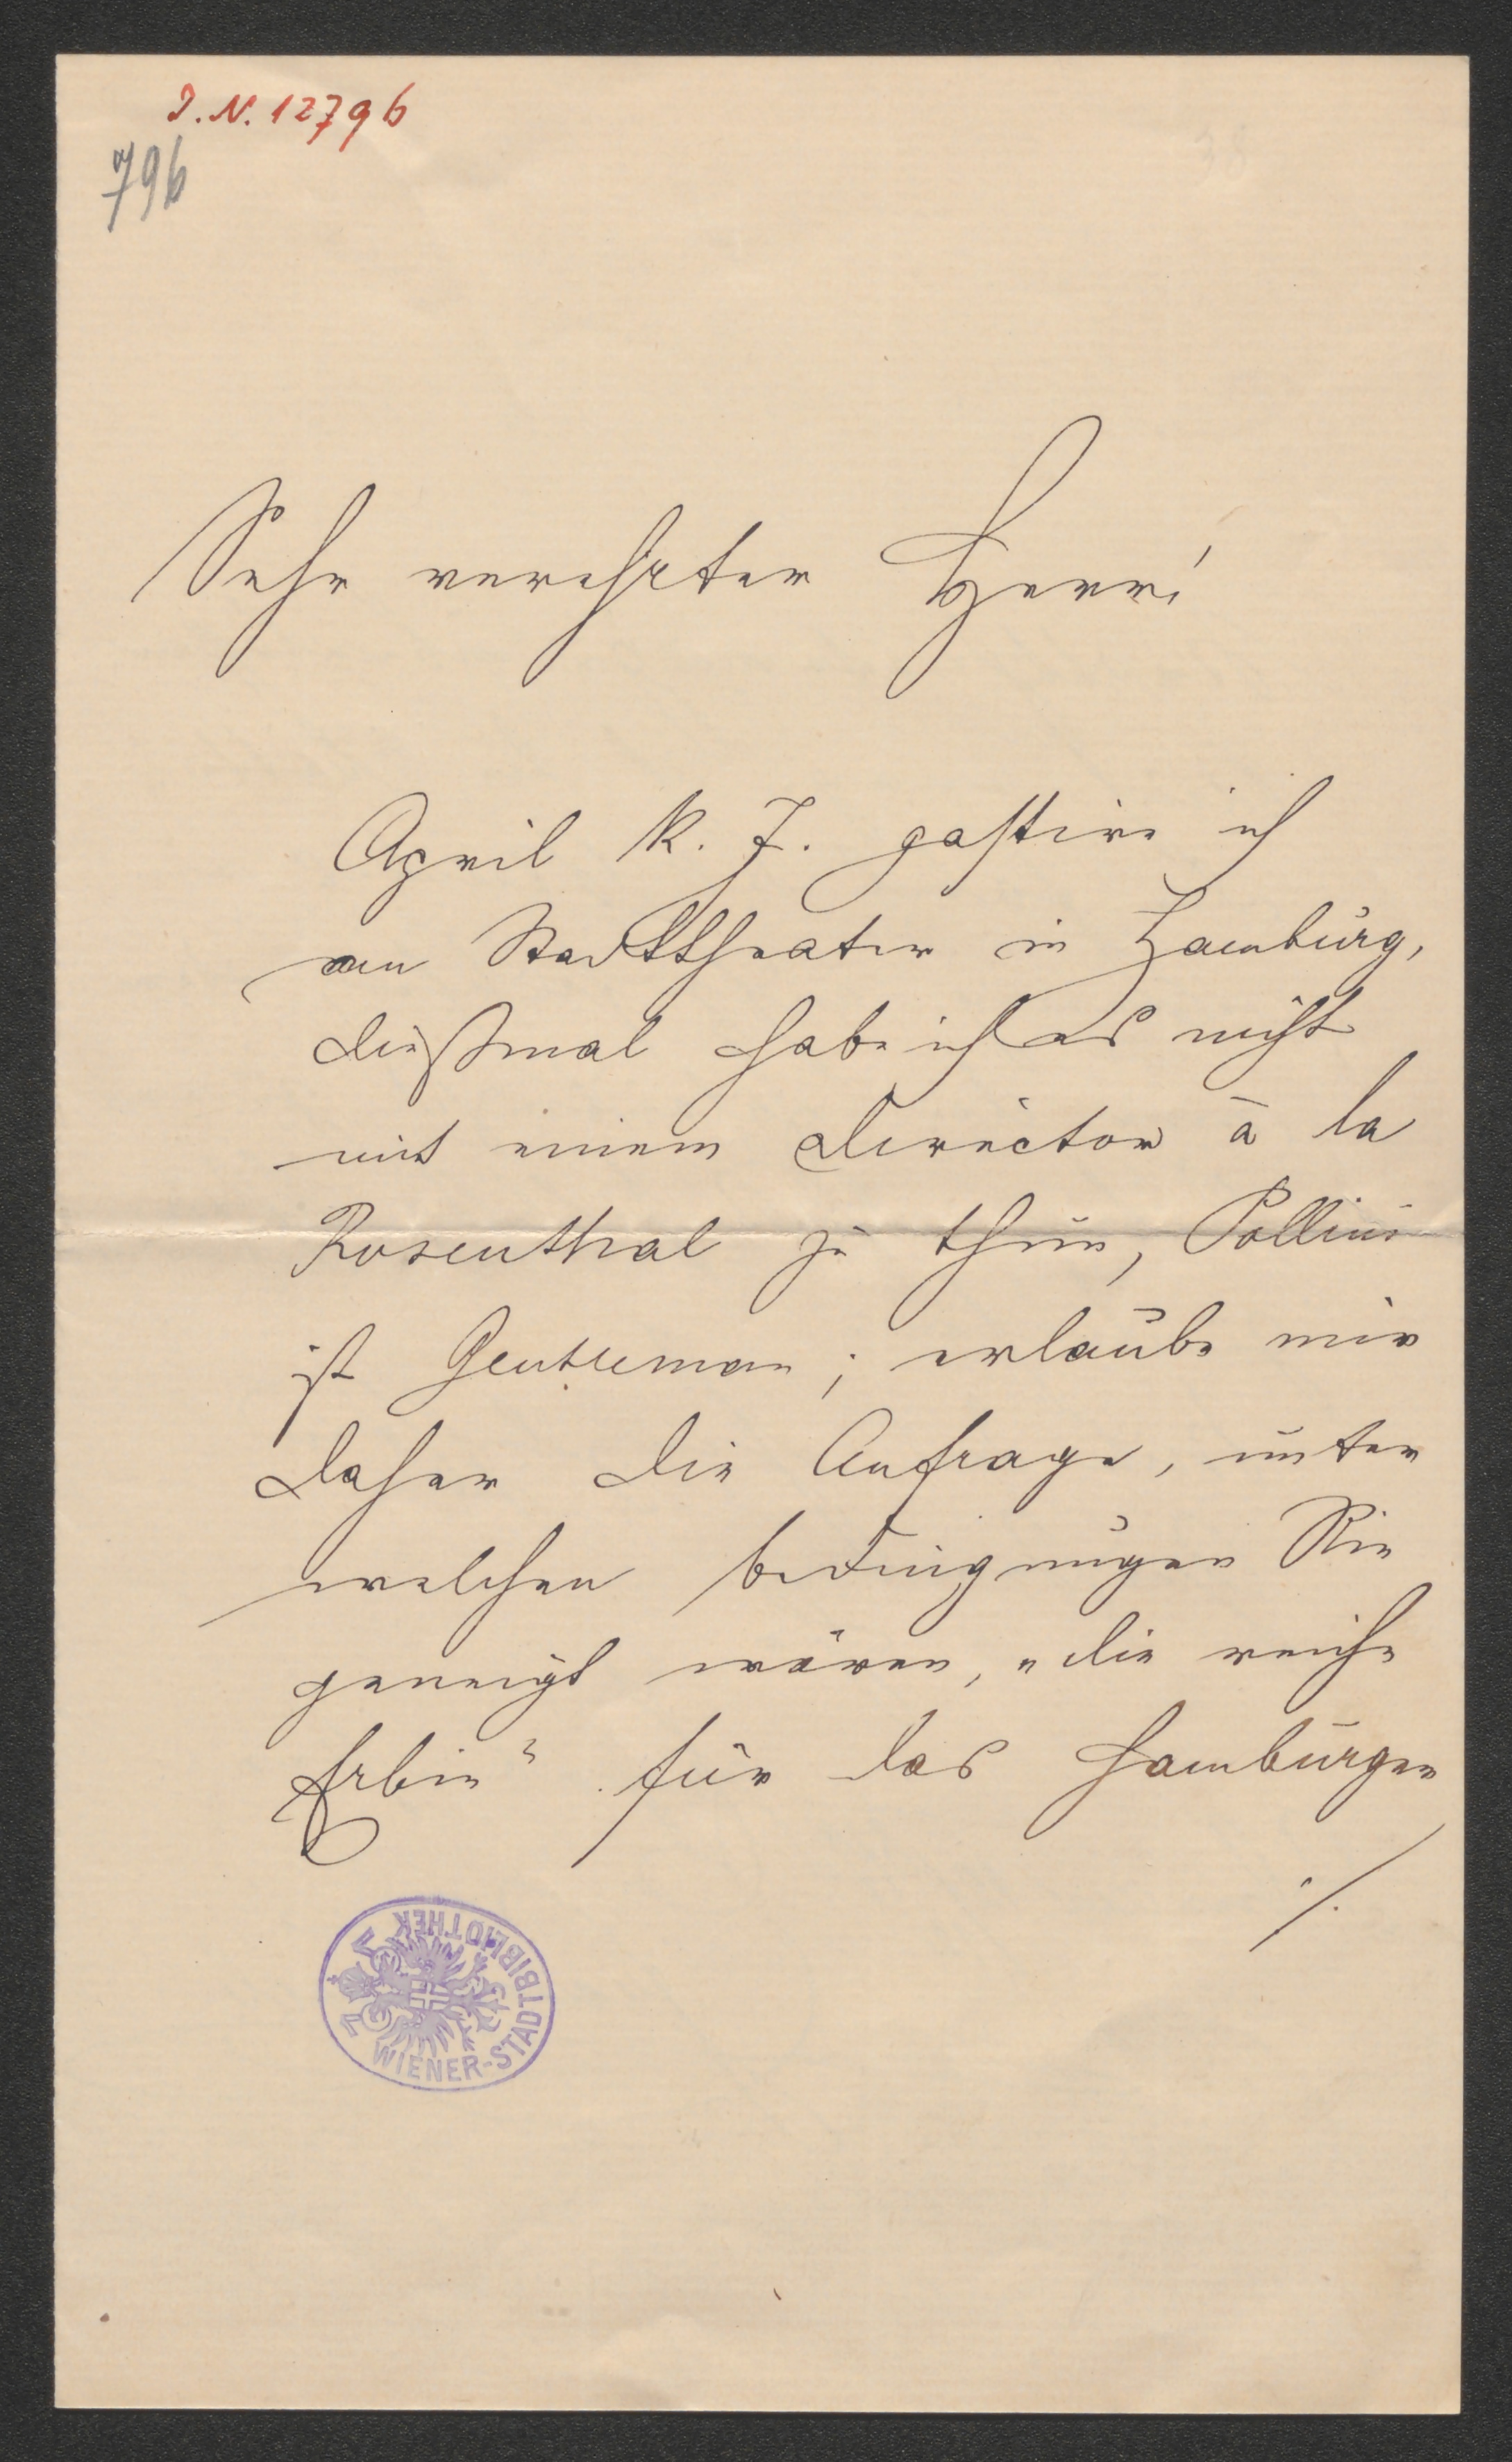 I. N. 12796
796
Sehr verehrter Herr!
April k. J. gastire ich
am Stadttheater in Hamburg,
dießmal habe ich es nicht
mit einem Director à la
Rosenthal zu thun, Pollini
ist Gentleman; erlaube mir
daher die Anfrage, unter
welchen Bedingungen Sie
geneigt wären, „die reiche
Erbin" für das Hamburger
./.
WIENER-STADTBIBLIOTHEK